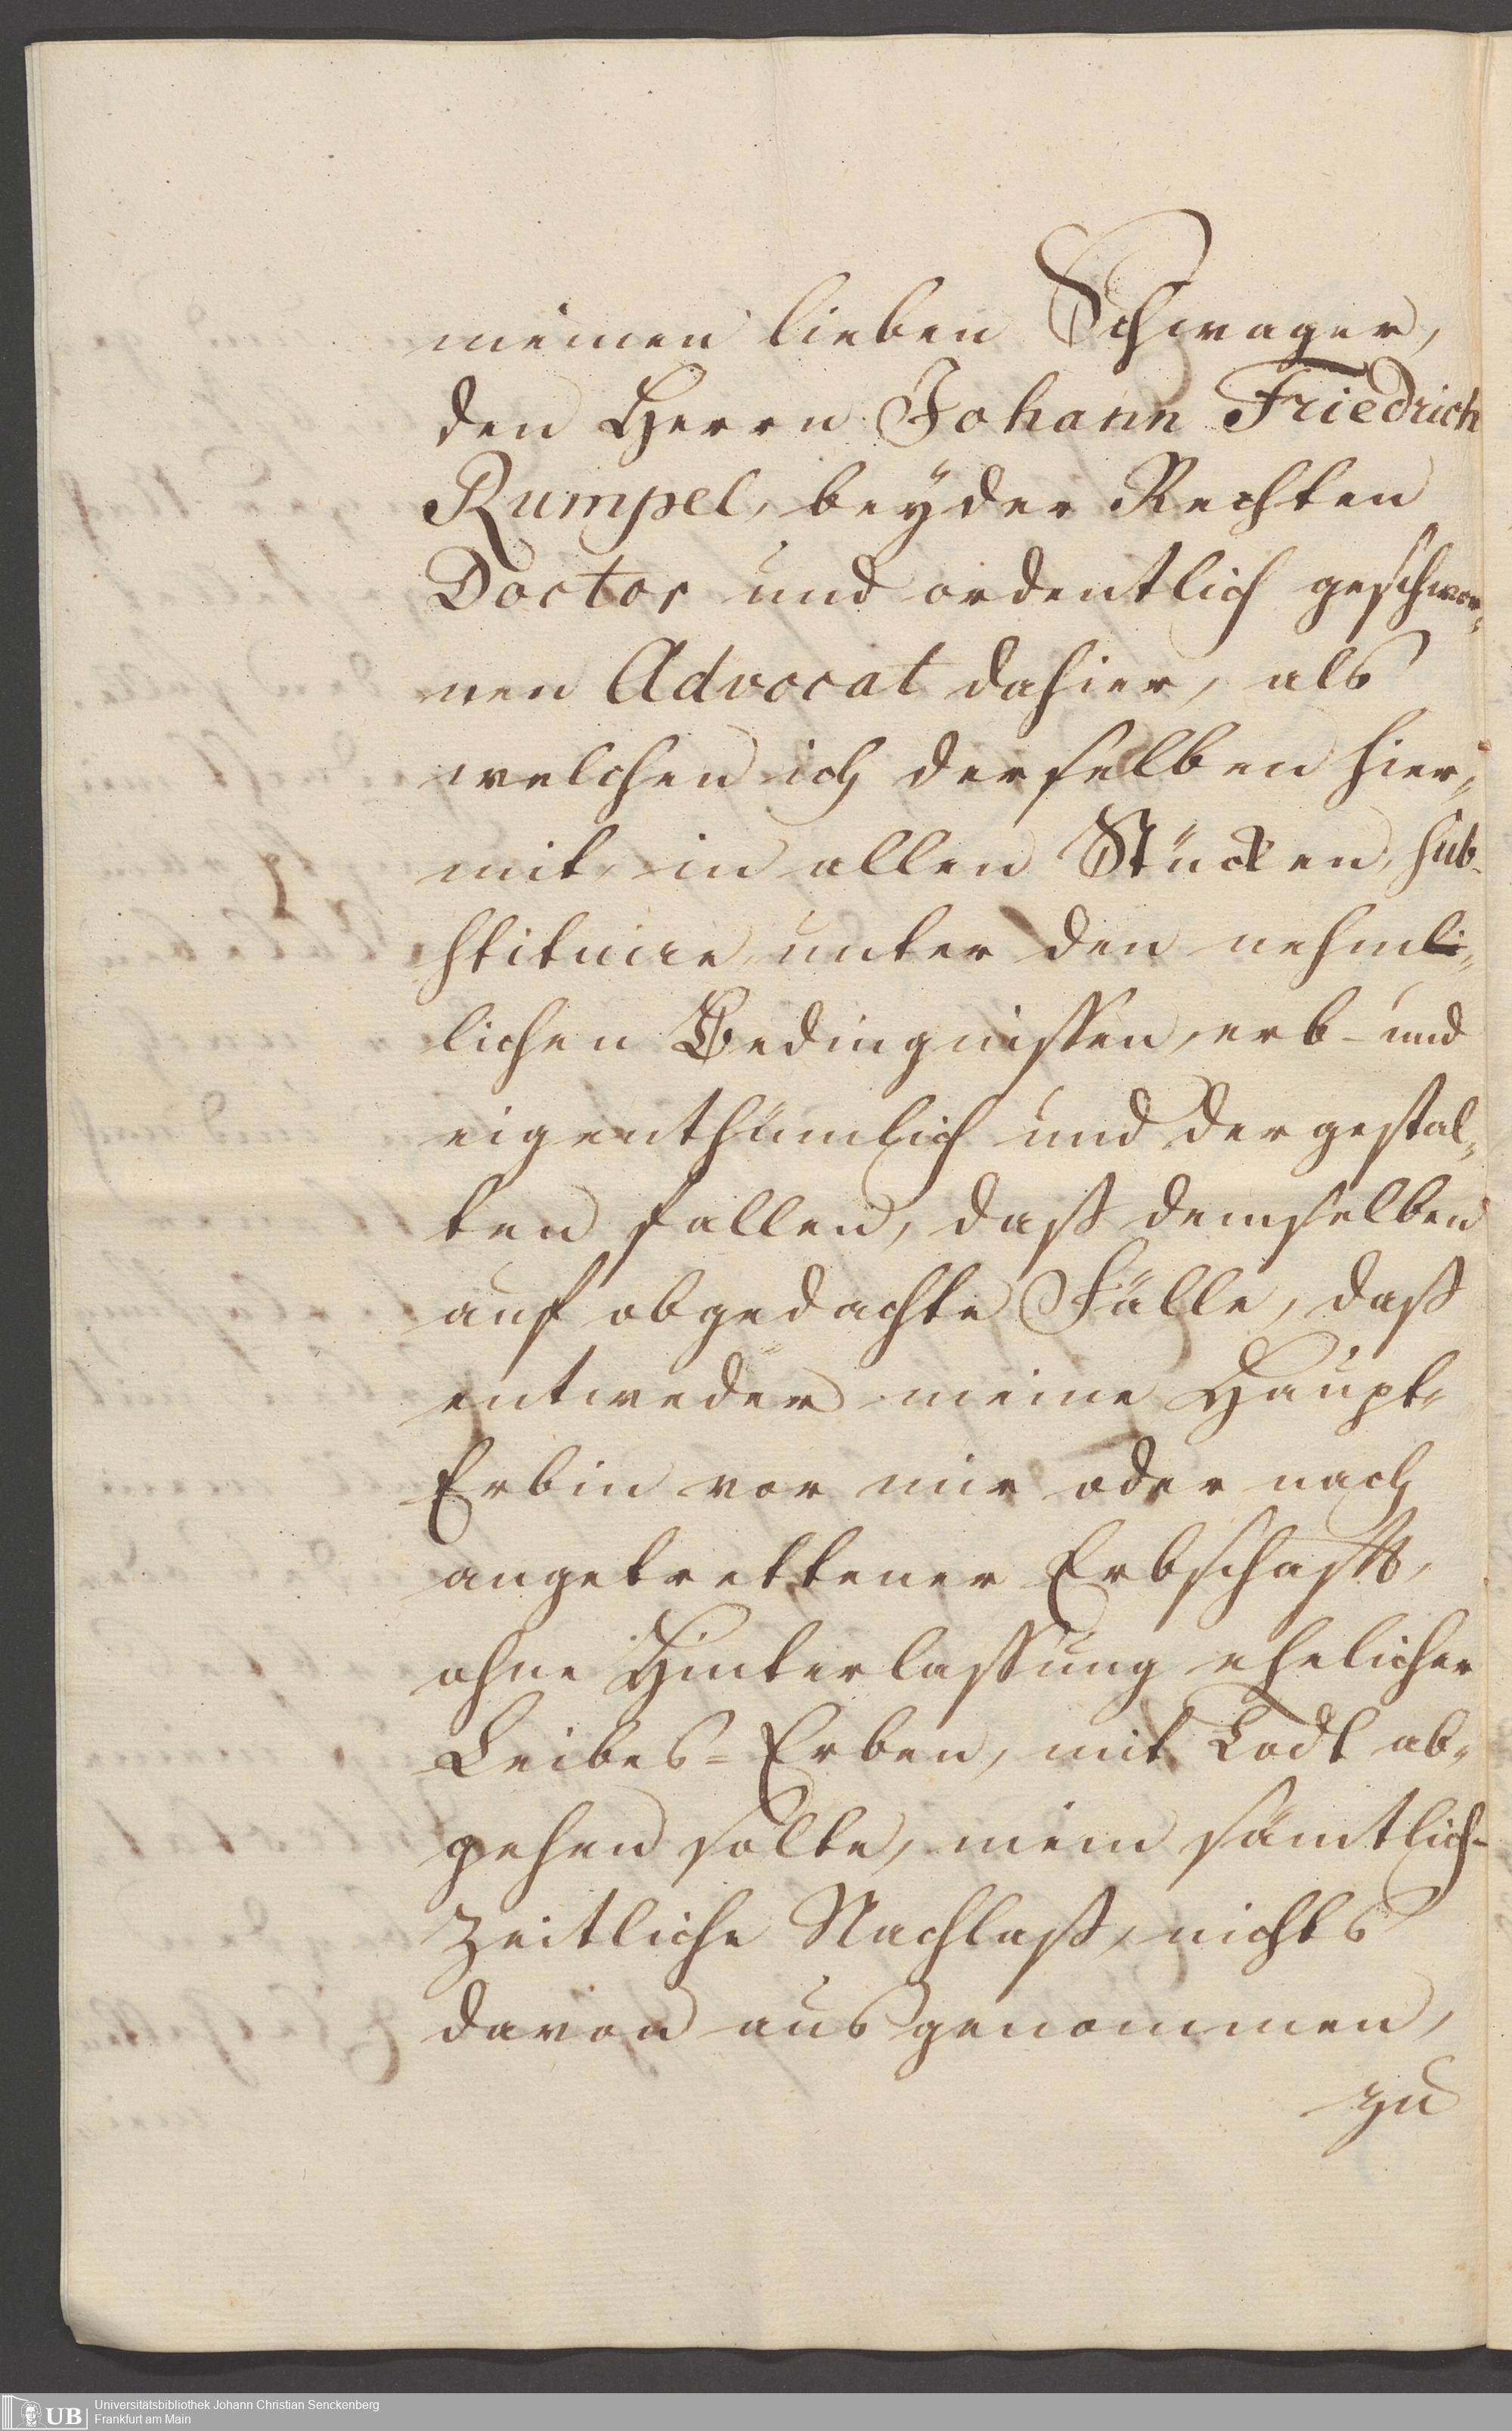 meinen lieben Schwager,
den Herrn Johann Friedrich
Rumpel, beÿder Rechten
Doctor und ordentlich geschwor„
nen Advocat dahier, als
welchen ich derselben hier„
mit, in allen Stücken, sub-
stituire, unter den nehmli„
lichen Bedingnissen, erb- und
eigenthümlich und dergestal„
ten fallen, daß demselben
auf obgedachte Fälle, daß
entweder meine Haupt-
Erbin vor mir oder nach
angetrettener Erbschafft,
ohne Hinterlassung ehelicher
Leibes=Erben, mit Todt ab„
gehen solte, mein sämtlich-
Zeitliche Nachlaß, nichts
davon ausgenommen,
zu
UB Universitätsbibliothek Johann Christian Senckenberg
Frankfurt am Main